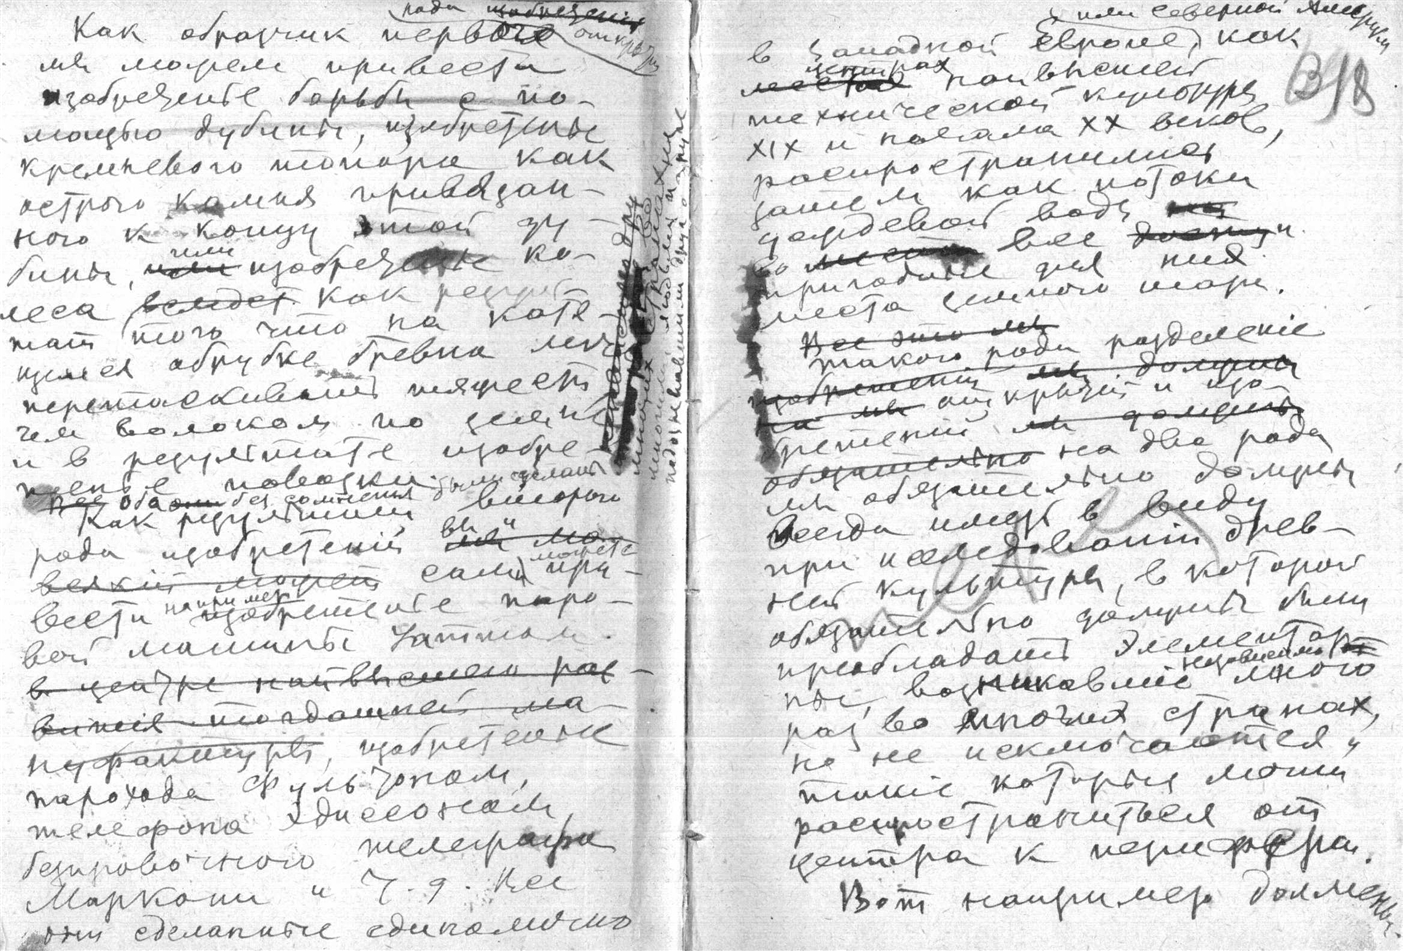 рода изобретений
открытий
Как образчик первого
мы можем привести
изобретение борьбы с по-
мощью дубины, изобретение
кремневого топора как
острого камня привязан-
ного к концу этой ду-
бины, или изобретение ко-
леса вследст. как резуль-
тат того что на катя-
щемся обрубке бревна легче
перетаскивать тяжести
чем волоком по земле
и в результате изобре-
тение повозки.
Все оба они без сомнения были сделаны
многих странах
многими людьми не
подозревавшими друг о друге
Как результаты второго
рода изобретений вы и мы мо
всякий может сами можете при-
вести например изобретение паро-
вой машины Уаттом
в центре наивысшего раз-
вития тогдашней ма-
нуфактуры, изобретение
парохода Фультоном,
телефона Эдиссоном
безпроволочного телеграфа
Маркони и т. д. Все
они сделанные единолично
или северной Америки
в западной Европе, как
местах центрах наивысшей
технической культуры
XIX и начала XX веков,
распространились
затем как потоки
дождевой воды на
во все доступн.
пригодные для них
места земного шара.
318
Все это мы
такого рода разделение
изобретений мы должны
на мы открытий и изо-
бретений мы должны
обязательно на два рода
мы обязательно должны
всегда иметь в виду
при исследовании древ-
ней культуры, в которой
обязательно должны были
преобладать элементар-
ные, возникавшие независимо много
раз во многих странах,
но не исключаются и
такие которые могли
распространиться от
центра к периферии.
Вот например долмены.